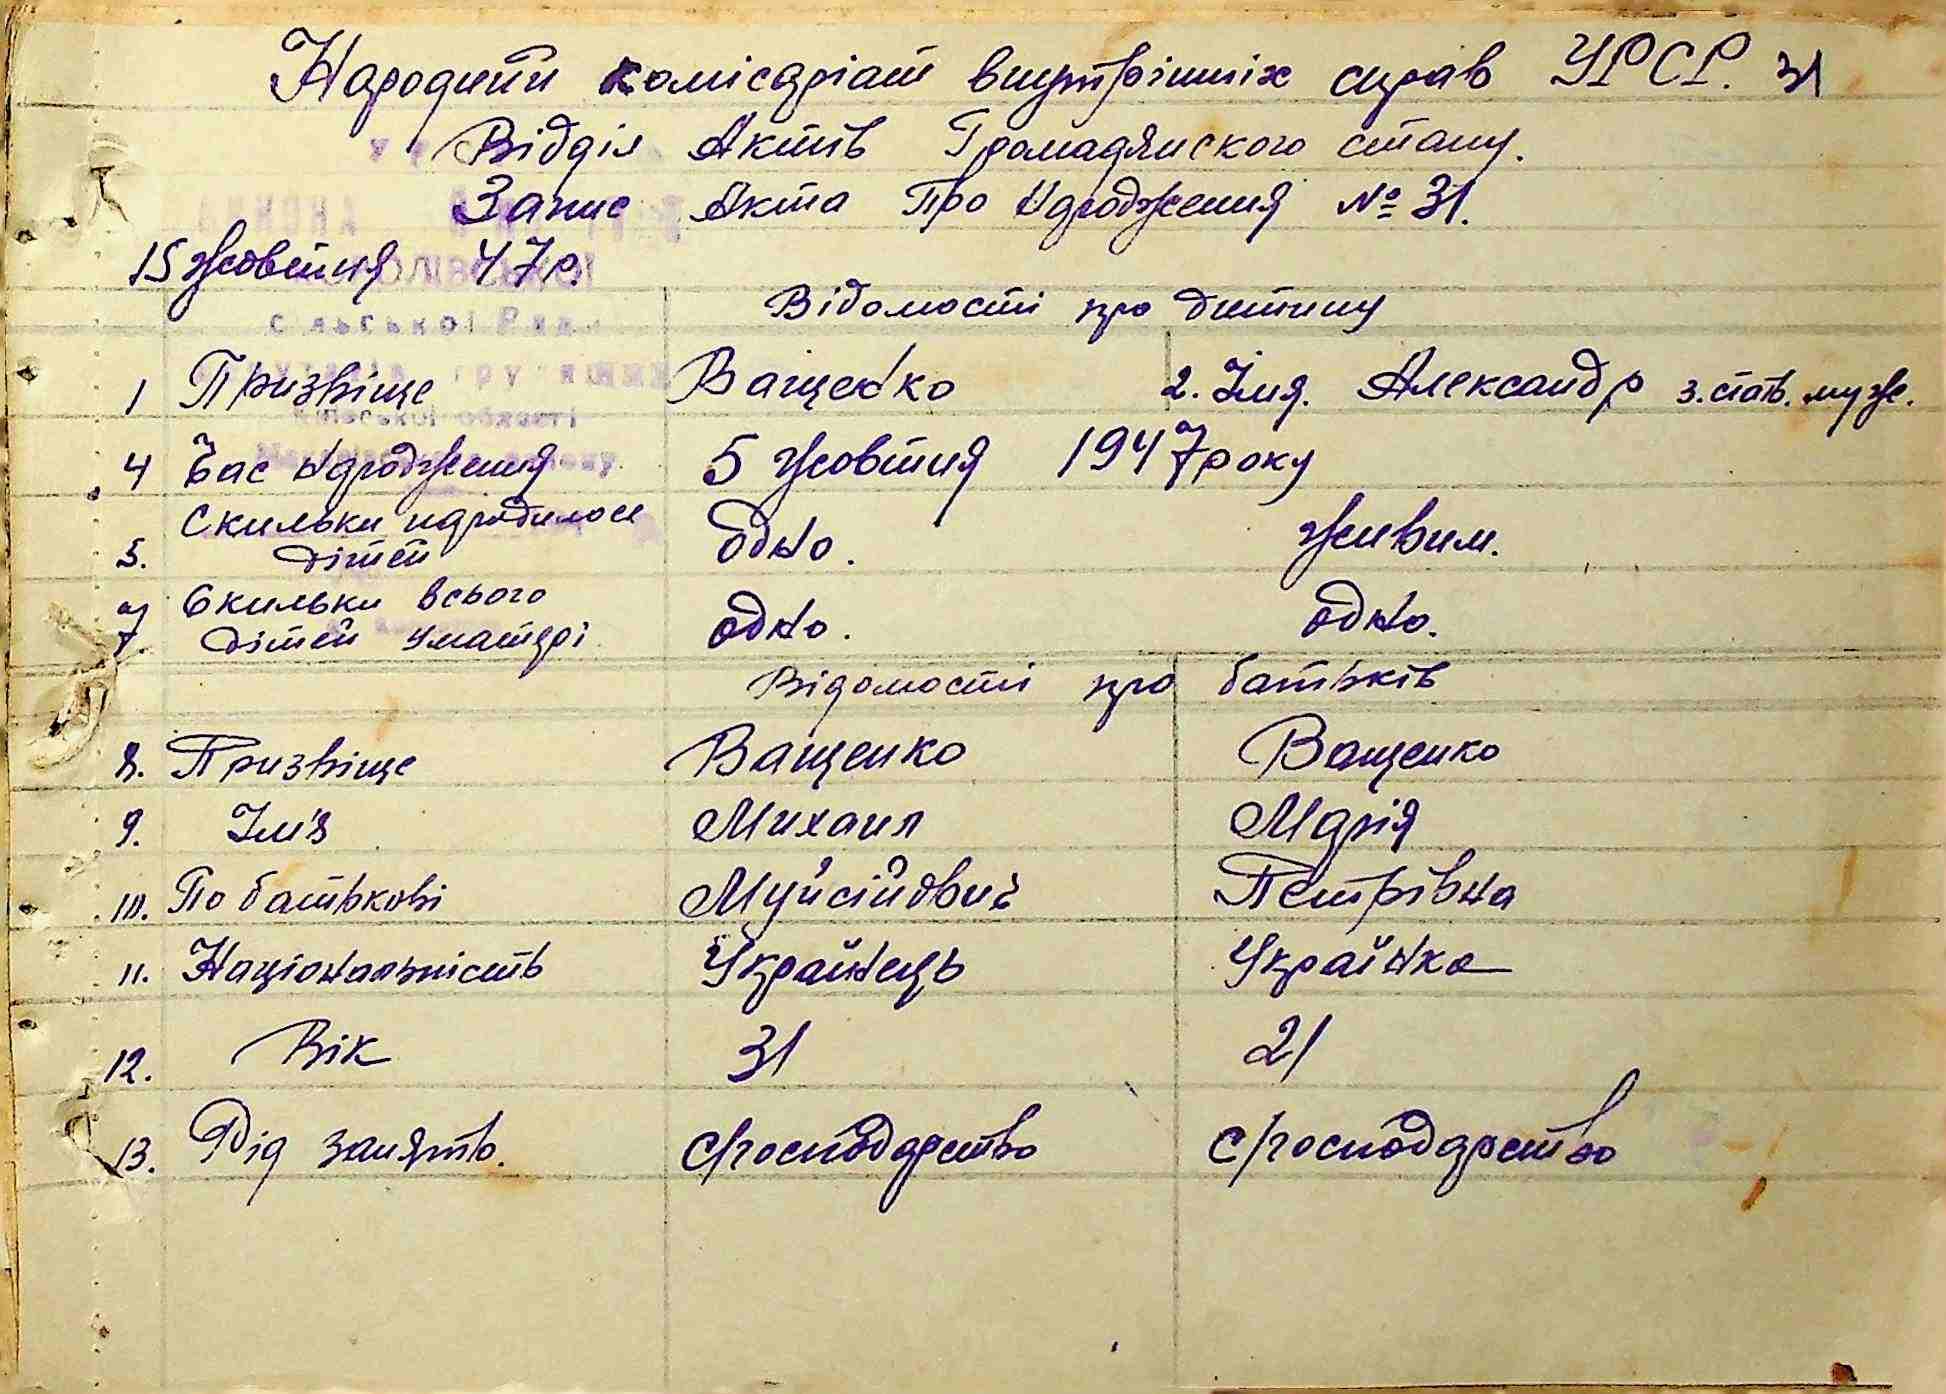 Народний комісаріат внутрішніх справ УРСР. 31
Відділ Актів Громадянского стану.
Запис Акта Про Народження № 31.
15 жовтня 47р.
Відомості про дитину
1 Призвіще Ващенко 2. Імя. Александр 3. стать. муж.
4 Час народження 5 жовтня 1947 року
5. Скильки народилося дітей одно. живим.
7. Скильки всього дітей уматері одно. одно.
Відомості про батьків
8. Призвіще Ващенко Ващенко
9. Ім'я Михаил Марія
10. По батькові Муйсійович Петрівна
11. Національність Українець Українка
12. Вік 31 21
13. Рід занять. с/господарство с/господарство
сільської Ради
області